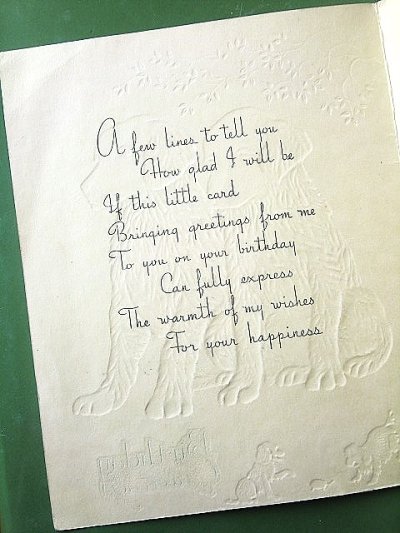 A few lines to tell you
How glad I will be
If this little card
Bringing greetings from me
To you on your birthday
Can fully express
The warmth of my wishes
For your happiness